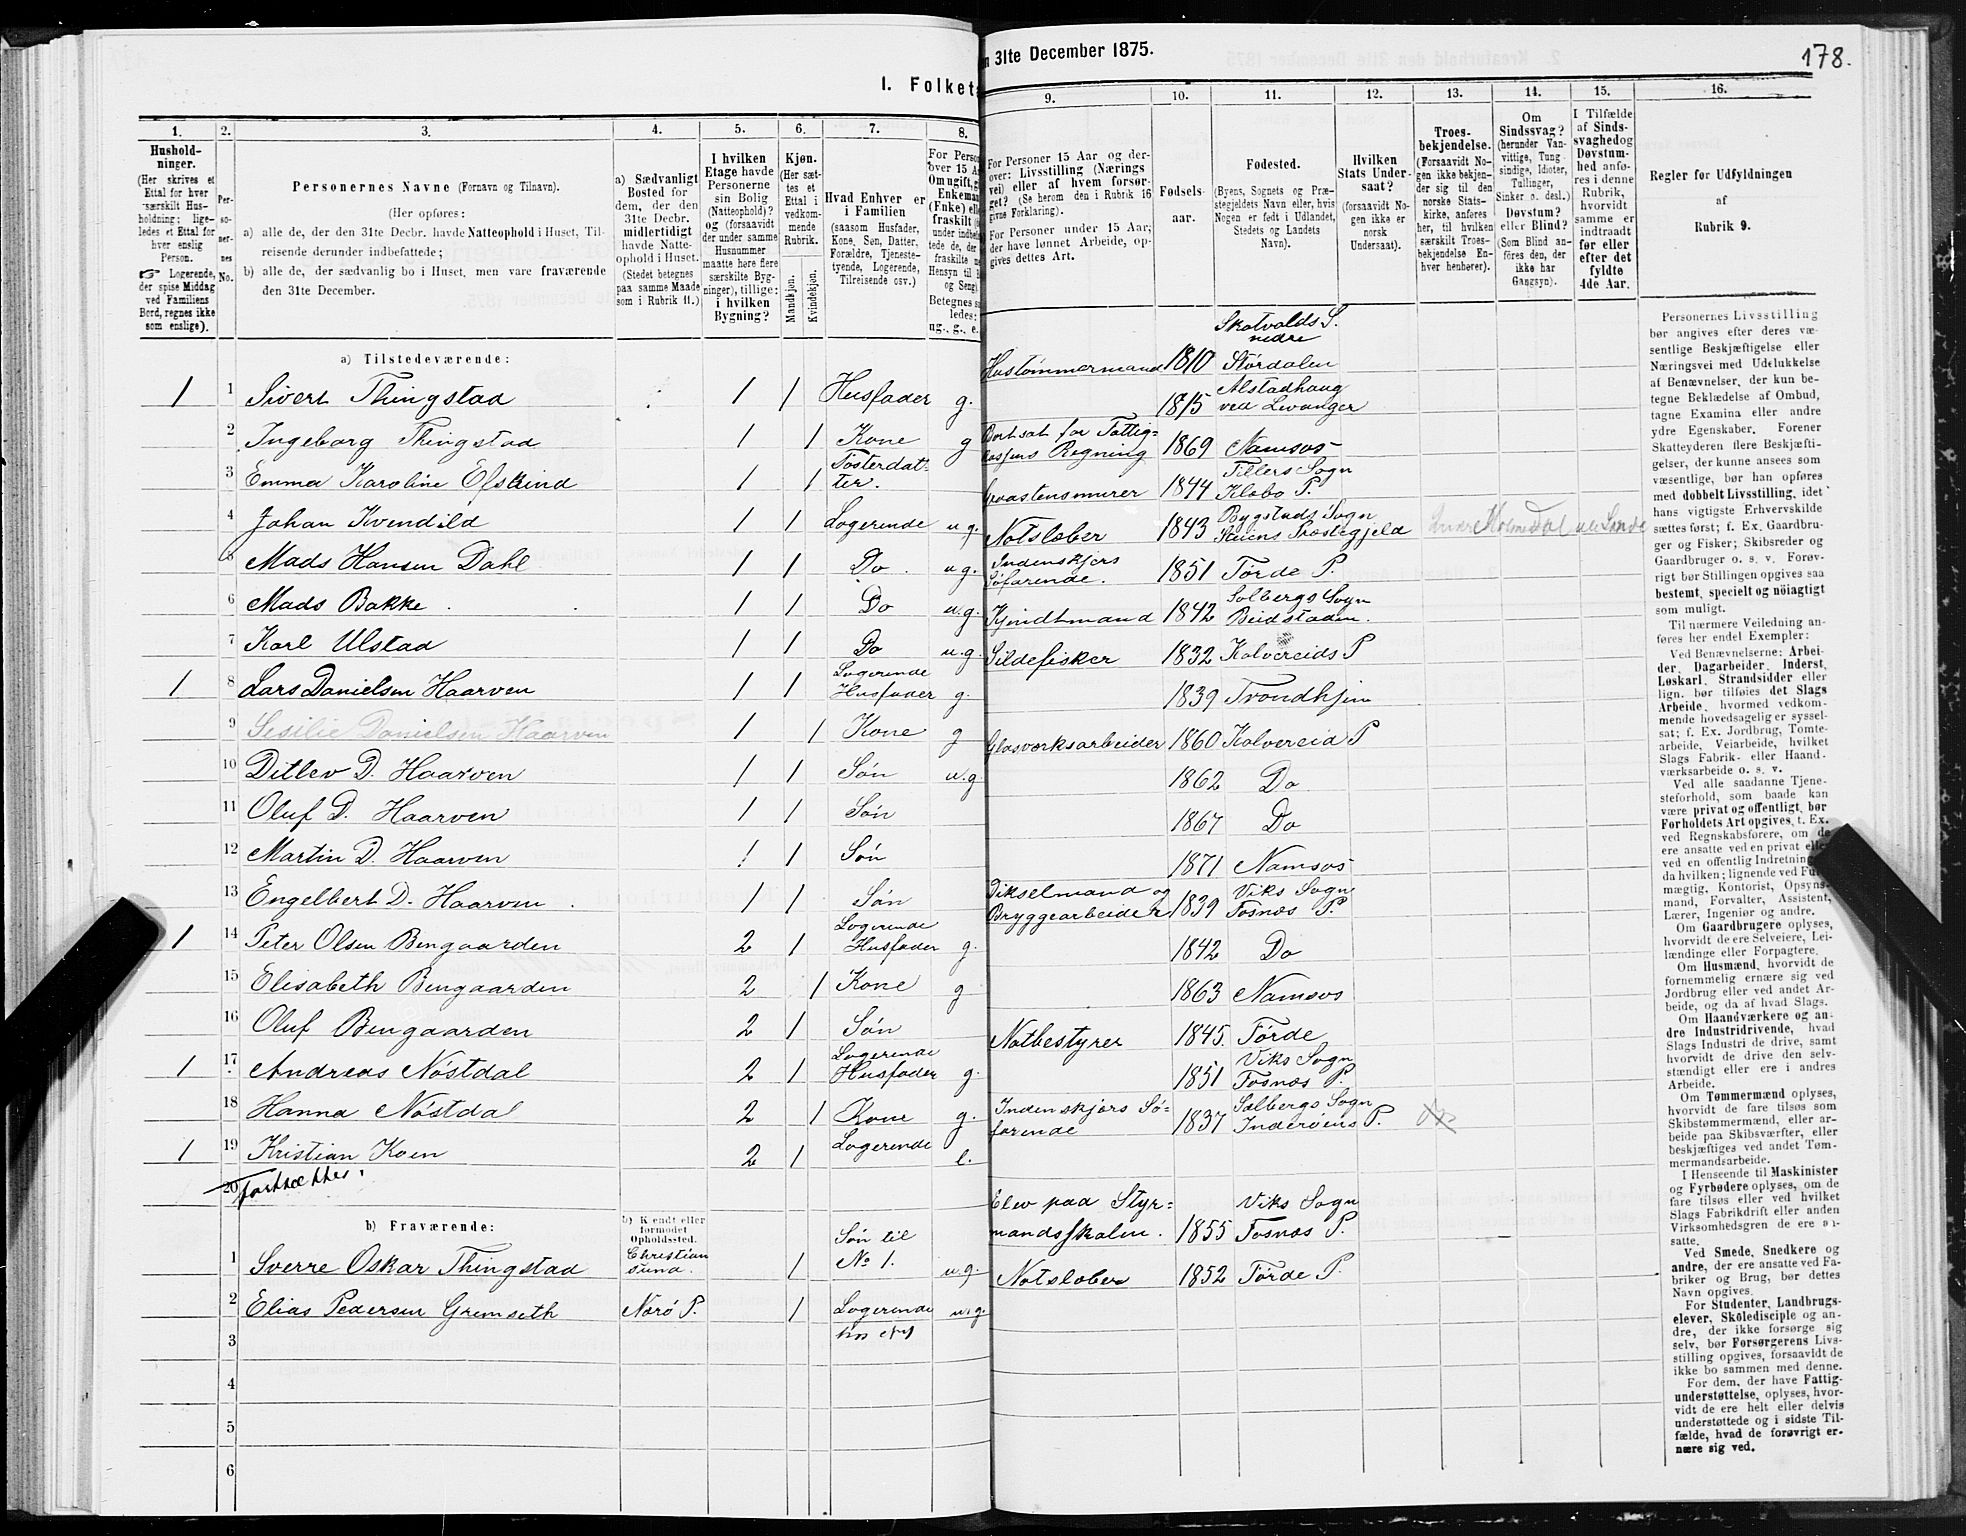 n 31te December 1875.
178.
I. Folket
1.
2.
3.
4.
5.
6.
7.
8.
9.
10.
11.
12.
13.
14.
15.
16.
Hushold-
ninger.
(Her skrives et
Ettal for hver
særskilt Hus-
holdning; lige-
ledes et Ettal for
hver enslig
Person.
☞ Logerende,
der spise Middag
ved Familiens
Bord, regnes ikke
som enslige).
Per-
so-
ner-
nes
No.
Personernes Navne (Fornavn og Tilnavn).
(Her opføres:
a) alle de, der den 31te Decbr. havde Natteophold i Huset, Til-
reisende derunder indbefattede;
b) alle de, der sædvanlig bo i Huset, men vare fraværende
den 31te December.
a) Sædvanligt
Bosted for
dem, der den
31te Decbr.
midlertidigt
havde Natte-
ophold i Huset.
(Stedet betegnes
paa samme Maade
som i Rubrik 11.)
I hvilken
Etage havde
Personerne
sin Bolig
(Natteophold)?
og (forsaavidt
der under samme
Husnummer
maatte høre flere
særskilte Byg-
ninger), tillige:
i hvilken
Bygning?
Kjøn.
(Her sæt-
tes et
Ettal i
vedkom-
mende
Rubrik.
Mandkjøn.
Kvindekjøn.
Hvad Enhver er
i Familien
(saasom Husfader,
Kone, Søn, Datter,
Forældre, Tjeneste-
tyende, Logerende,
Tilreisende osv.)
For Perso
over 15 A
Om ugift, g
Enkeman
(Enke) elle
fraskilt (i
under indbe
tede de, de
fraskilte m
Hensyn til B
og Seng).
Betegnes sa
ledes:
ug., g., e.
For Personer 15 Aar og der-
over: Livsstilling (Nærings
vei) eller af hvem forsør-
get? (Se herom den i Rubrik 16
givne Forklaring).
For Personer under 15 Aar,
der have lønnet Arbeide, op-
gives dettes Art.
Fødsels-
aar.
Fødested.
(Byens, Sognets og Præ-
stegjeldets Navn eller, hvis
Nogen er født i Udlandet,
Stedets og Landets
Navn).
Hvilken
Stats Under-
saat?
(forsaavidt No-
gen ikke er
norsk
Undersaat).
Troes-
bekjendelse.
(Forsaavidt No-
gen ikke bekjen-
der sig til den
norske Stats-
kirke, anføres
her, til hvilken
særskilt Troes-
bekjendelse En-
hver henhører).
Om
Sindssvag?
(herunder Van-
vittige, Tung-
sindige, Idioter,
Tullinger,
Sinker o. desl.)
Døvstum?
eller Blind?
(Som Blind an-
føres den, der
ikke har
Gangsyn).
I Tilfælde
af Sinds-
svaghed og
Døvstum-
hed anfø-
res i denne
Rubrik,
hvorvidt
samme er
indtraadt
før eller
efter det
fyldte
4de Aar.
Regler for Udfyldningen
af
Rubrik 9.
a) Tilstedeværende:
1 1 Sivert Thingstad 1 1 Husfader g. Hustømmermand 1810 Skatvalds S. nedre Størdalen
2 Ingeborg Thingstad 1 1 Kone g 1815 Alstadhaug ved Levanger
3 Emma Karoline Efskind 1 1 Fosterdat- ter. Bortsat for Fattig- kassens Regning 1869 Namsos
4 Johan Kvendild 1 1 Logerende u.g. Graastensmurer 1844 Tillers Sogn Klæbo P.
5 Mads Hansen Dahl 1 1 Do u.g. Notsløber 1843 Bygstads Sogn Præstegjeld
6 Mads Bakke 1 1 Do u.g. Indenskjærs Søfarende. 1851 Førde P.
7 Karl Ulstad 1 1 Do u.g. Kjendtmand 1842 Solbergs Sogn Beidstaden.
1 8 Lars Danielsen Haarven 1 1 Logerende Husfader g. Sildefisker 1832 Kolvereids P
9 Sesilie Danielsen Haarven 1 1 Kone g 1839 Trondhjem
10 Ditlev D. Haarven 1 1 Søn u.g. Glasværksarbeider 1860 Kolvereid P
11 Oluf D. Haarven 1 1 Søn 1862 Do
12 Martin D. Haarven 1 1 Søn 1867 Do
13 Engelbert D. Haarven 1 1 Søn 1871 Namsos
1 14 Peter Olsen Bengaarden 2 1 Logerende Husfader g. Dikselmand og Bryggearbeider 1839 Viks Sogn Fosnæs P.
15 Elisabeth Bengaarden 2 1 Kone g 1842 Do
16 Oluf Bengaarden 2 1 Søn 1863 Namsos
1 17 Andreas Nøstdal 2 1 Logerende Husfader g. Notbestyrer 1845. Førde
18 Hanna Nøstdal 2 1 Kone g. 1851 Viks Sogn Fosnæs P.
1 19 Kristian Koen 2 1 Logerende e. Indenskjærs Sø- farende 1837 Salbergs Sogn Inderøens P.
20 Fortsættes.
b) Fraværende:
b) Kjendt eller
formodet
Opholdssted.
1 Sverre Oskar Thingstad Christian sund. 1 Søn til No 1. u.g. Elev paa Styr- mandsskolen. 1855 Viks Sogn Fosnæs P.
2 Elias Pedersen Gremseth Nærø P. 1 Logerende hos u.g. Notsløber 1852 Førde P.
3
4
5
6
Personernes Livsstilling
bør angives efter deres væ-
sentlige Beskjæftigelse eller
Næringsvei med Udelukkelse
af Benævnelser, der kun be-
tegne Beklædelse af Ombud,
tagne Examina eller andre
ydre Egenskaber. Forener
Skatteyderen flere Beskjæfti-
gelser, der kunne ansees som
væsentlige, bør han opføres
med dobbelt Livsstilling, idet
hans vigtigste Erhvervskilde
sættes først; f. Ex. Gaardbru-
ger og Fisker; Skibsreder og
Gaardbruger o. s. v. Forøv-
rigt bør Stillingen opgives saa
bestemt, specielt og nöiagtigt
som muligt.
Til nærmere Veiledning an-
føres her endel Exempler:
Ved Benævnelserne: Arbei-
der, Dagarbeider, Inderst,
Løskarl, Strandsidder eller
lign. bør tilføies det Slags
Arbeide, hvormed vedkom-
mende hovedsagelig er syssel-
sat; f. Ex. Jordbrug, Tomte-
arbeide, Veiarbeide, hvilket
Slags Fabrik- eller Haand-
værksarbeide o. s. v.
Ved alle saadanne Tjene-
steforhold, som baade kan
være privat og offentligt, bør
Forholdets Art opgives, t. Ex.
ved Regnskabsførere, om de
ere ansatte ved en privat elle
ved en offentlig Indretning
da hvilken; lignende ved Ful
mægtig, Kontorist, Opsyns-
mand, Forvalter, Assistent,
Lærer, Ingeniør og andre.
Om Gaardbrugere oplyses,
hvorvidt de ere Selveiere, Lei-
lændinge eller Forpagtere.
Om Husmænd, hvorvidt de
fornemmelig ernære sig ved
Jordbrug eller ved andet Ar-
beide, og da af hvad Slags.
Om Haandværkere og an-
dre Industridrivende, hvad
Slags Industri de drive, samt
hvorvidt de drive den selv-
stændigt eller ere i andres
Arbeide.
Om Tømmermænd oplyses,
hvorvidt de fare tilsøs som
Skibstømmermænd, eller ar-
beide paa Skibsværfter, eller
beskjæftiges ved andet Tøm-
mermandsarbeide.
I Henseende til Maskinister
og Fyrbødere oplyses, om de
fare tilsøs eller ved hvilket
Slags Fabrikdrift eller anden
Virksomhedsgren de ere an-
satte.
Ved Smede, Snedkere og
andre, der ere ansatte ved Fa-
briker og Brug, bør dettes
Navn opgives.
For Studenter, Landbrugs-
elever, Skoledisciple og an-
dre, der ikke forsørge sig
selv, bør Forsørgerens Livs-
stilling opgives, forsaavidt de
ikke bo sammen med denne.
For dem, der have Fattig-
understøttelse, oplyses, hvor-
vidt de ere helt eller delvis
understøttede og i sidste Til-
fælde, hvad de forøvrigt er-
nære sig ved.